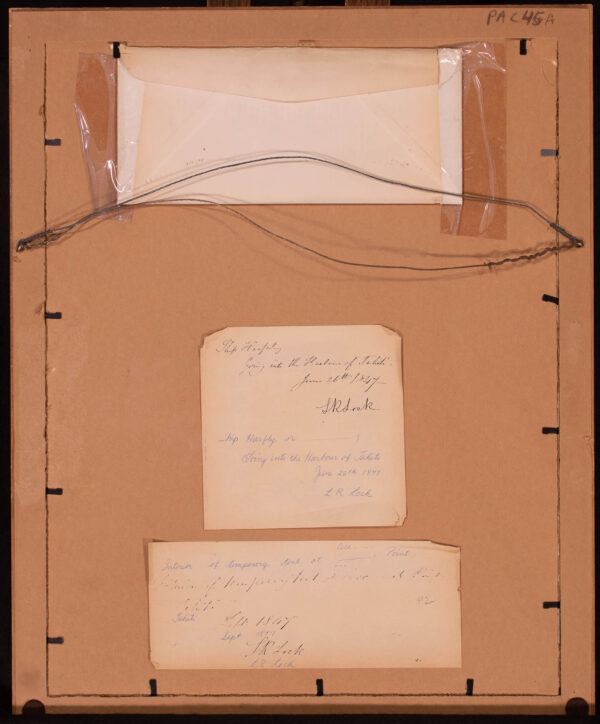 PAC45A
Going into the Harbour of Tahiti.
June 26th 1847
S R Lock
Ship Harply or ?
Going into the Harbour of Tahiti
June 26th 1847
L R Lock
Interior of temporary tent at Point
Interior of temporary tent Point
Tahiti
Tahiti 1847
Sept 1847
S R Lock
L R Lock